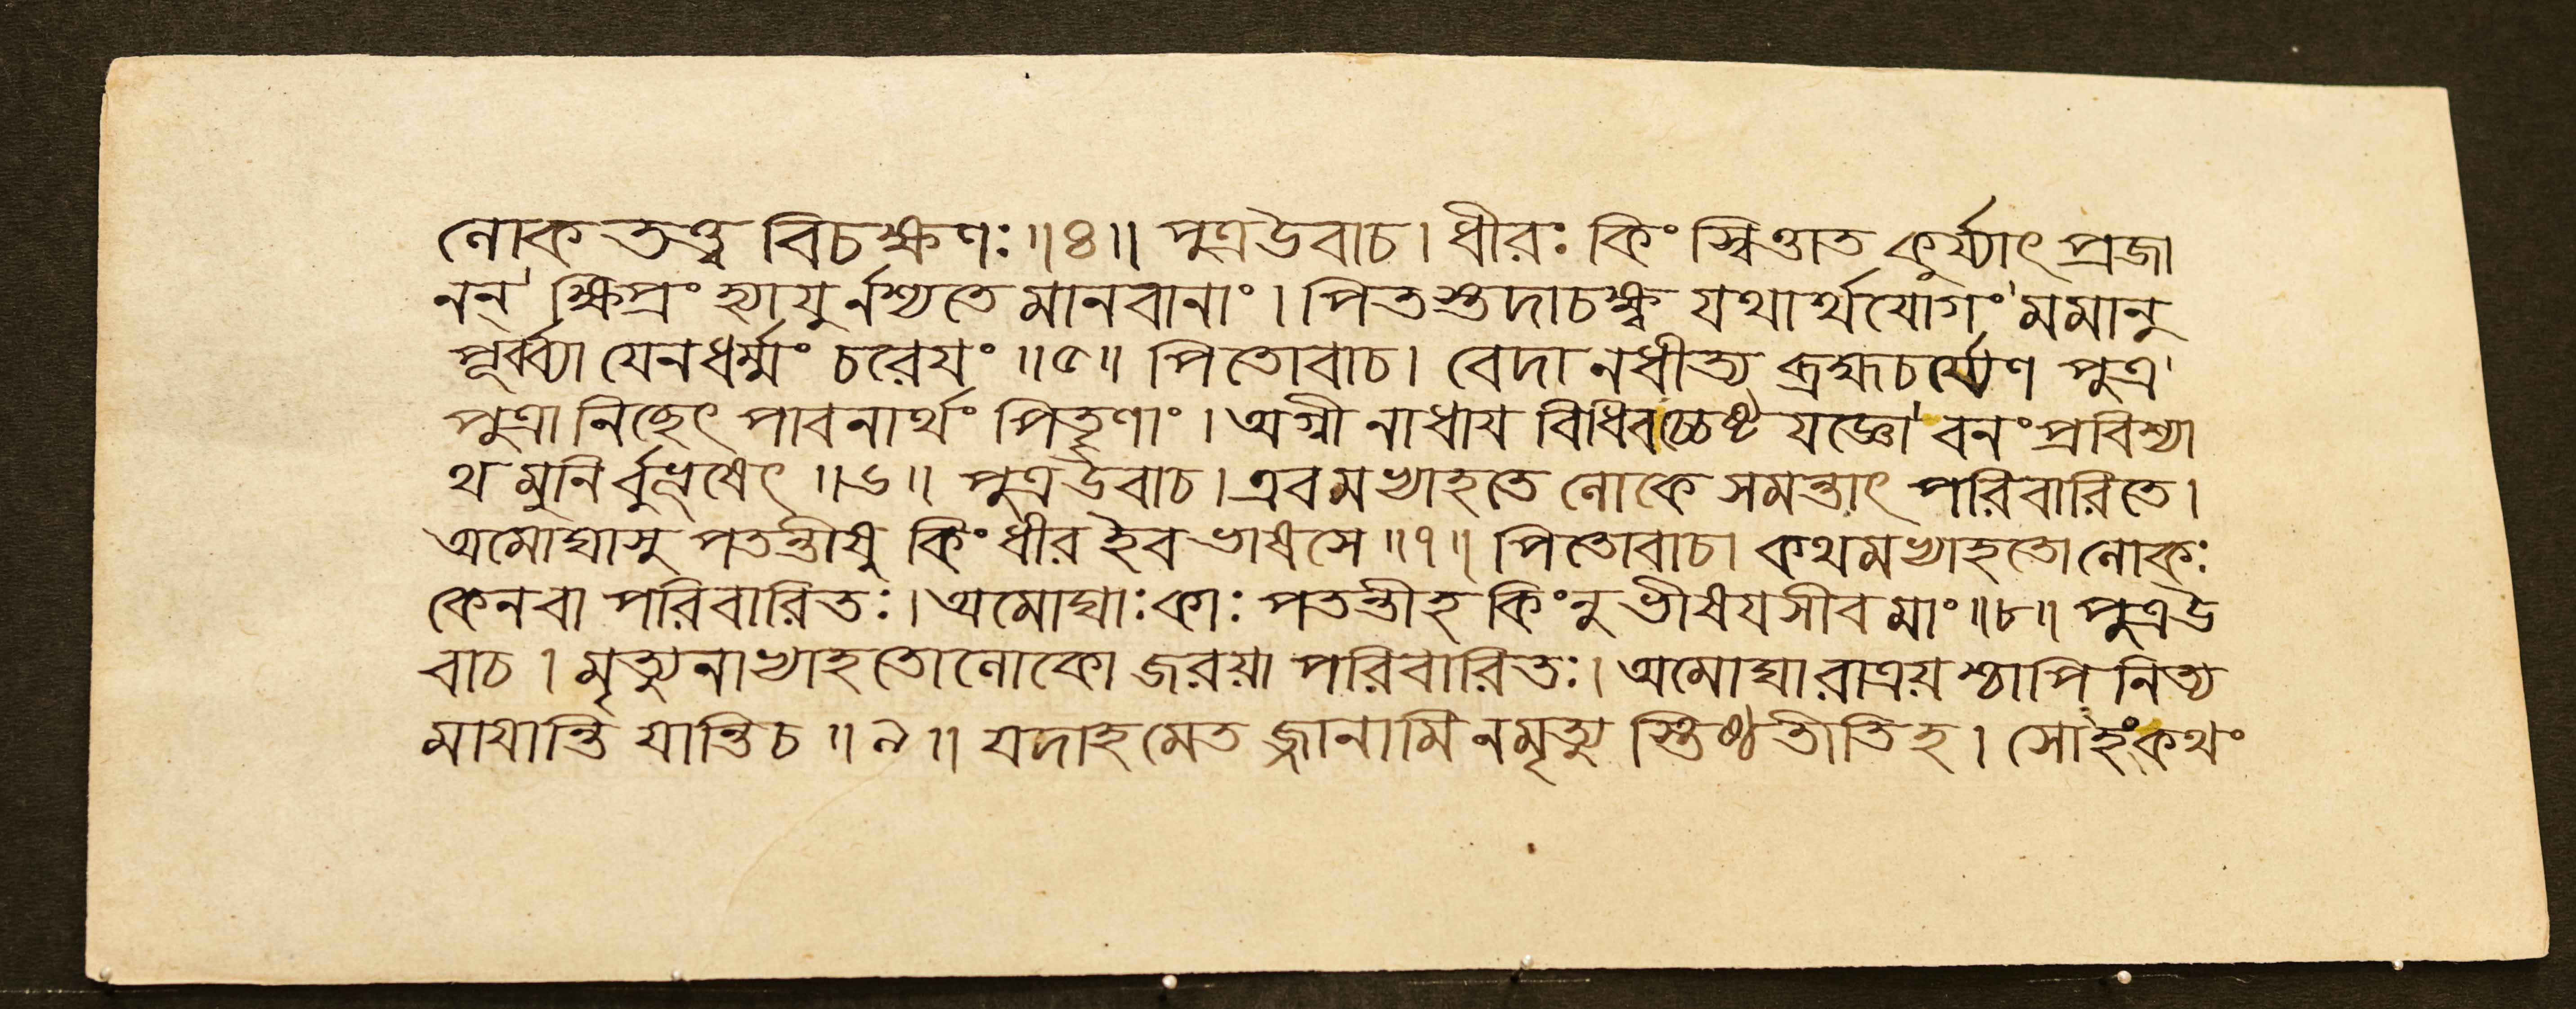 লোক তত্ত্ব বিচক্ষণঃ ॥৪॥ পুত্রউবাচ। ধীরঃ কিং স্বিত্তাত কুর্য্যাৎ প্রজা
নন্' ক্ষিপ্রং হ্যাযুর্নশ্যতে মানবানাং। পিতস্তদাচক্ষ্ব যথার্থযোগং' মমানু
পূর্ব্ব্যা যেনধর্ম্মং চরেযং ॥৫॥ পিতোবাচ। বেদানধীত্য ব্রহ্মচর্য্যেণ পুত্র'
পুত্রানিচ্ছেৎ পাবনার্থং পিতৄণাং। অগ্নীনাধায বিধিবচ্চেষ্ট যজ্ঞো' বনং প্রবিশ্যা
থ মুনির্বুভূষেৎ ॥৬॥ পুত্রউবাচ। এবমভ্যাহতে লোকে সমন্তাৎ পরিবারিতে।
অমোঘাসু পতন্তীষু কিং ধীর ইব ভাষসে ॥৭॥ পিতোবাচ। কথমভ্যাহতো লোকঃ
কেনবা পরিবারিতঃ। অমোঘাঃ কাঃ পতন্তীহ কিংনু ভীষযসীব মাং ॥৮॥ পুত্রউ
বাচ। মৃত্যুনাভ্যাহতোলোকো জরয়া পরিবারিতঃ। অমোঘা রাত্রয়শ্চাপি নিত্য
মাযান্তি যান্তিচ ॥৯॥ যদাহমেতজ্জানামি নমৃত্যুস্তিষ্ঠতীতিহ। সোহংকথং